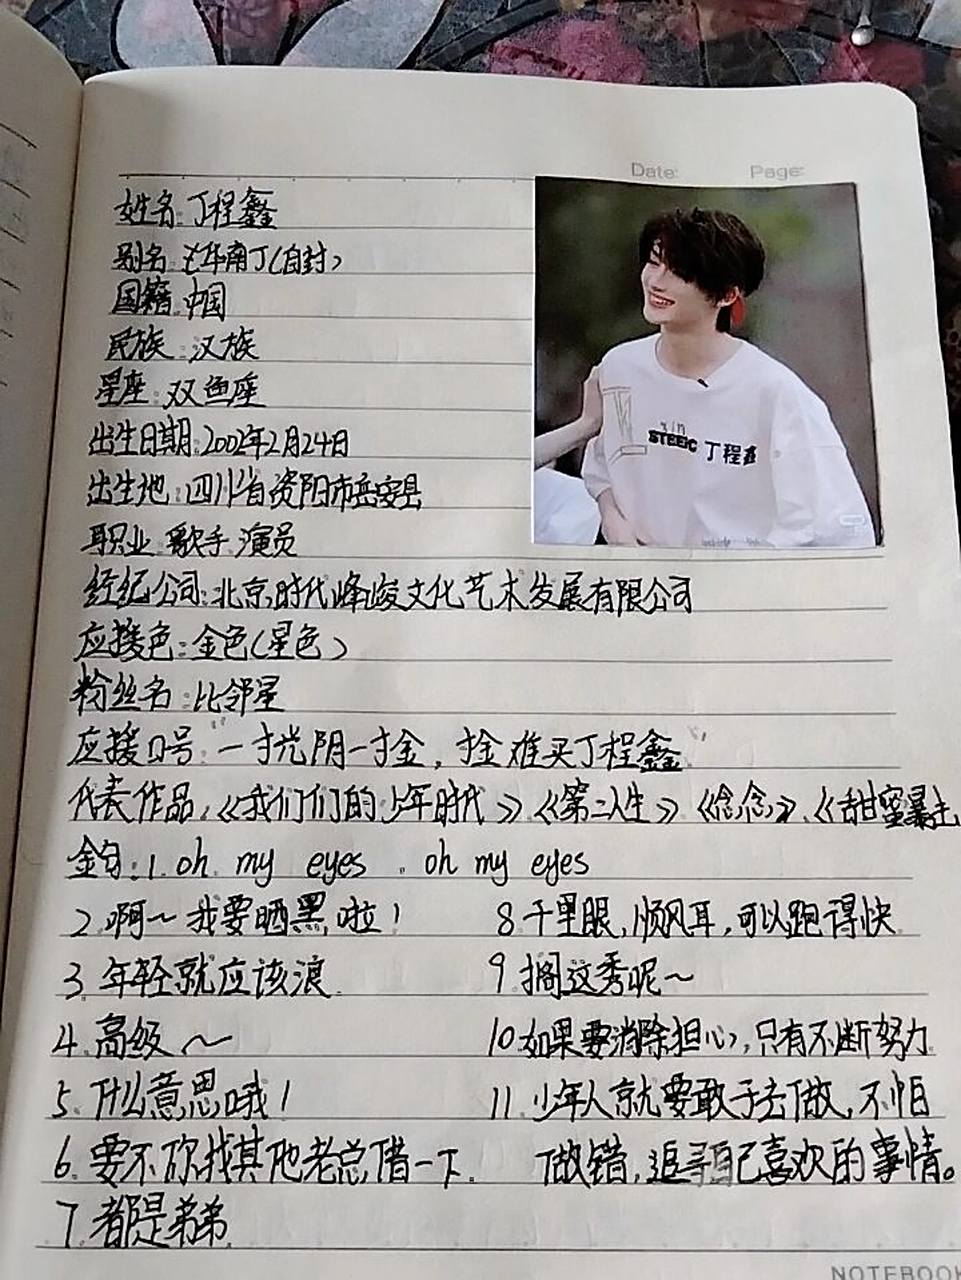 Date: Page:
姓名:丁程鑫
别名:芒华南丁(自封)
国籍:中国
民族:汉族
星座:双鱼座
出生日期:2002年2月24日
出生地:四川省资阳市岳安县
职业:歌手 演员
经纪公司:北京时代峰峻文化艺术发展有限公司
应援色:金色(星色)
粉丝名:比邻星
应援口号:“一寸光阴一寸金,寸金难买丁程鑫”
代表作品:《我们们的少年时代》《第二人生》《念念》、《甜蜜暴击
金句:1.oh my eyes . oh my eyes
2.啊~我要晒黑啦!
3.年轻就应该浪.
4.高级~
5.什么意思哦!
6.要不你找其他老总借一下.
7.都是弟弟.
8.千里眼,顺风耳,可以跑得快.
9.搁这秀呢~
10.如果要消除担心,只有不断努力.
11.少年人就要敢于去做,不怕
做错,追寻自己喜欢的事情。
xin
STEEIC 丁程鑫
NOTEBOOK